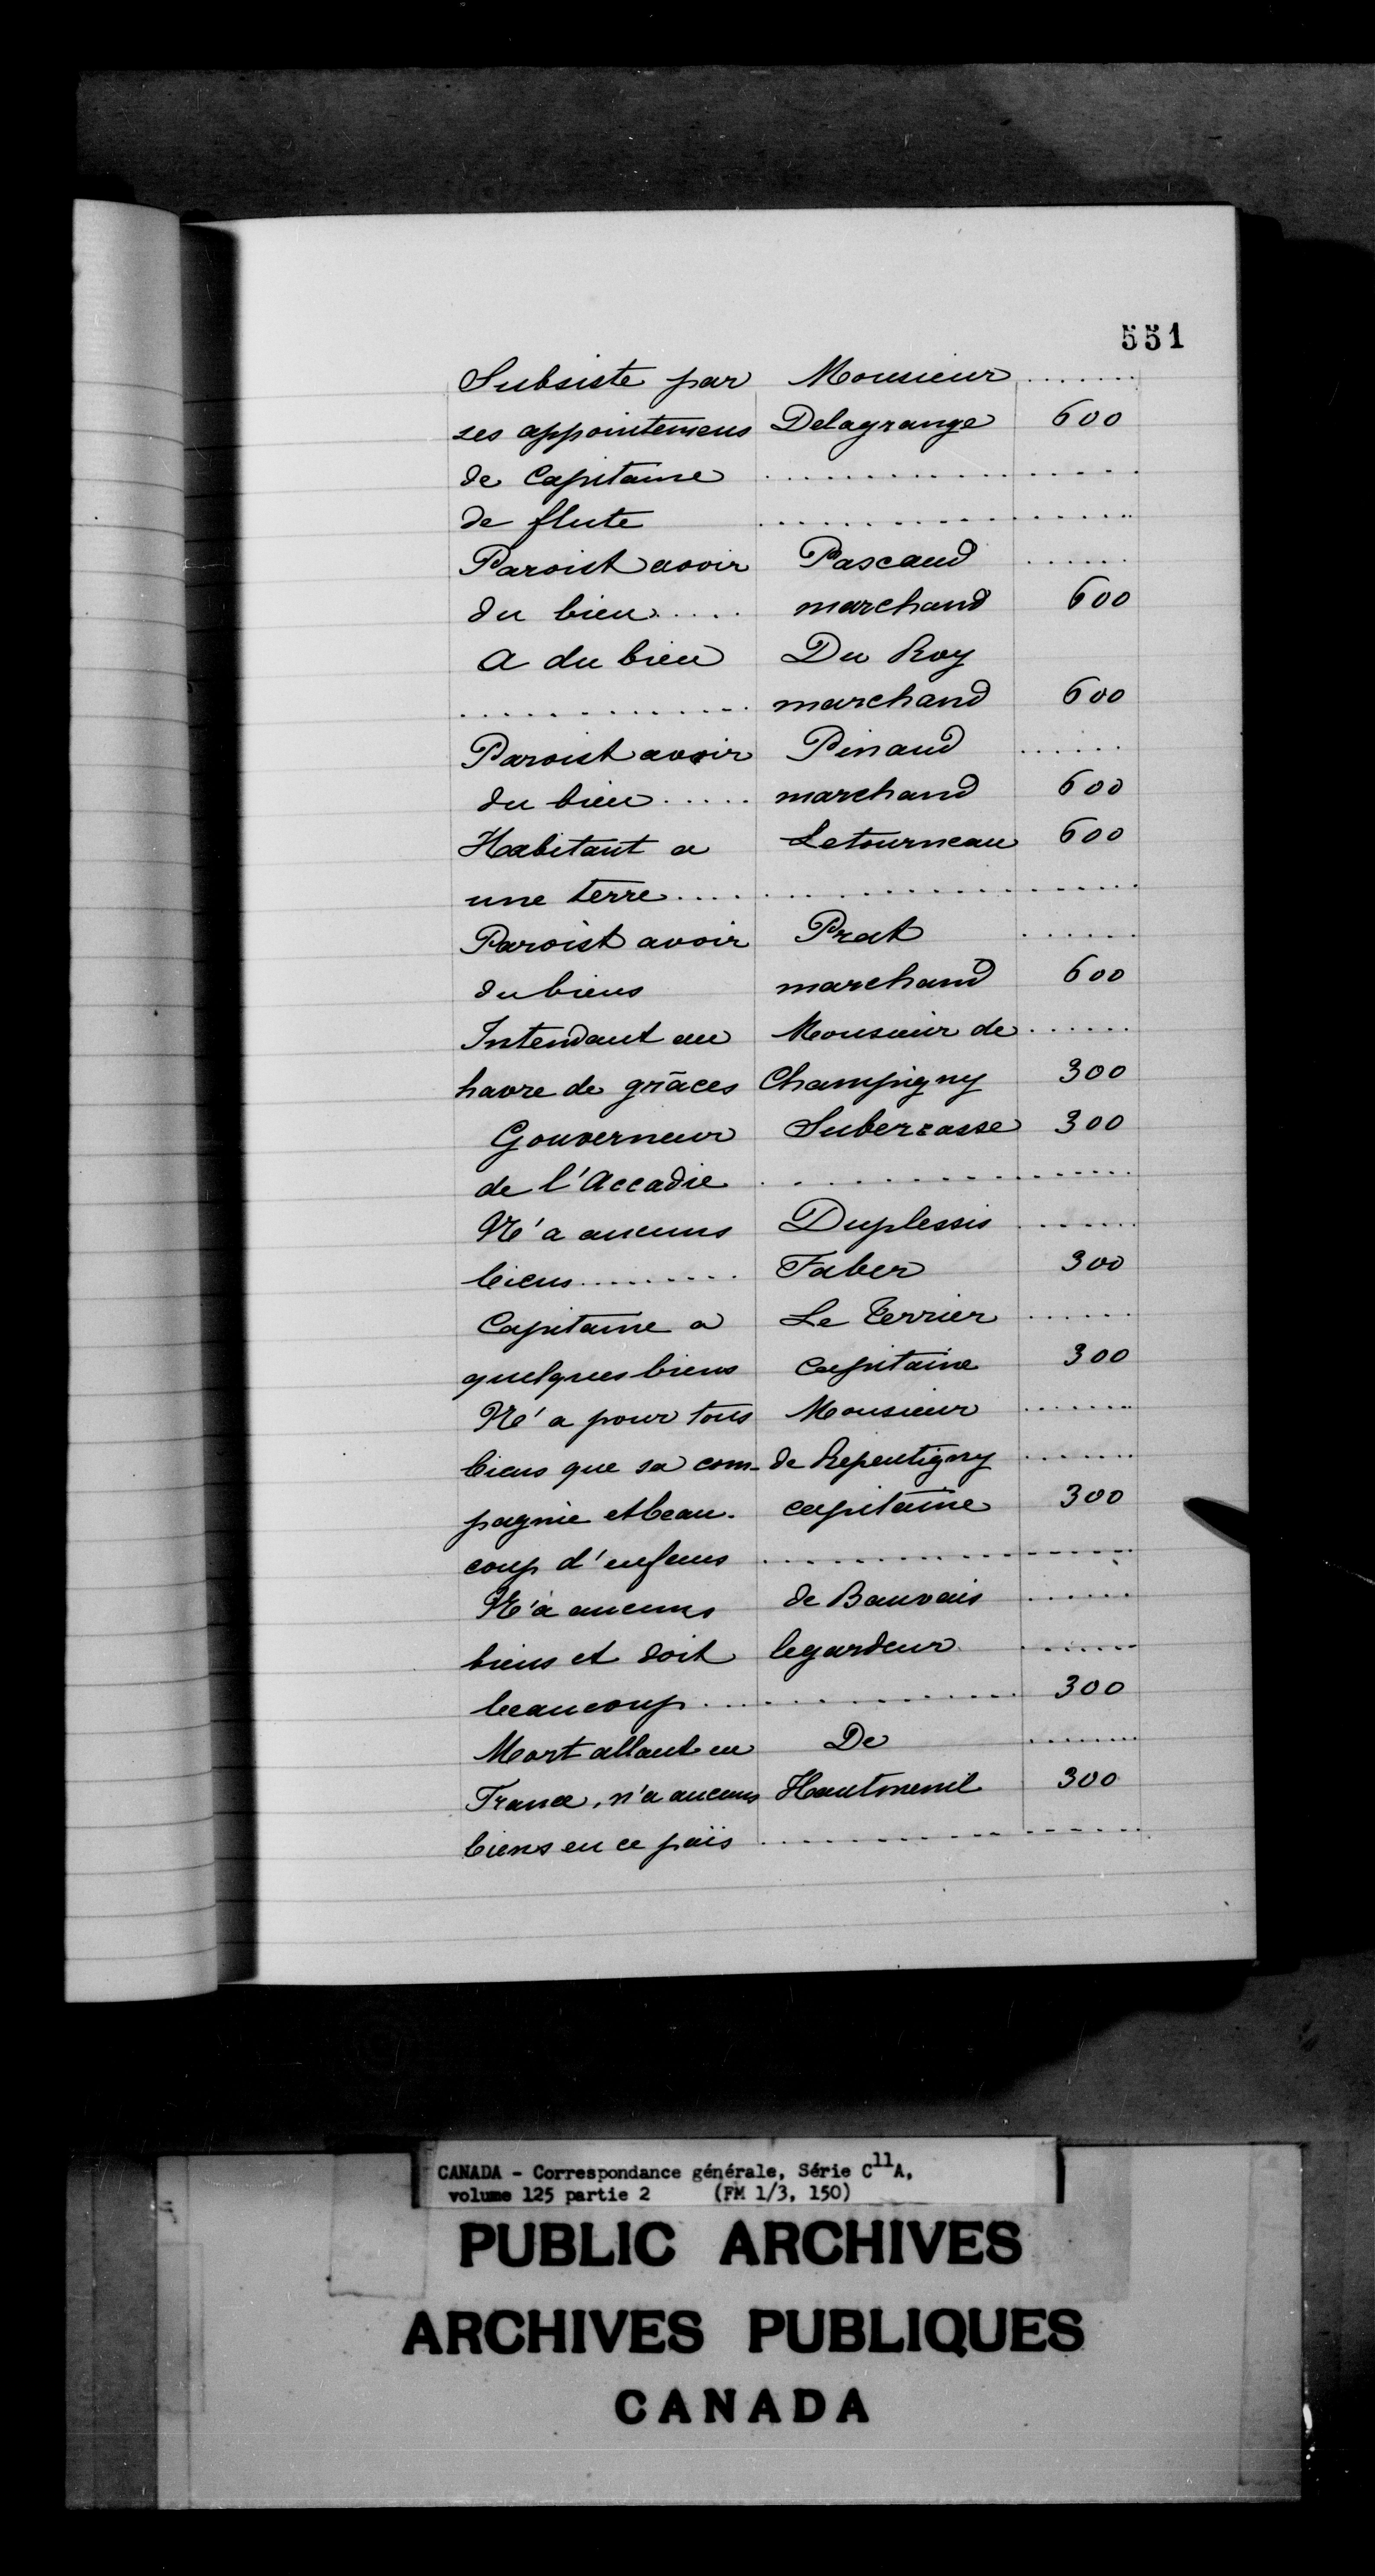 551
Subsiste par Monsieur .......
ses appointemens Delagrange 600
de Capitaine ....................
de flute ....................
Paroist avoir Pascaud ......
du bien ..... marchand 600
a du bien Du Roy
............. marchand 600
Paroist avoir Pinaud ......
du bien ..... marchand 600
Habitant a Letourneau 600
une terre ....................
Paroist avoir Prat ......
du biens marchand 600
Intendant au Monsieur de ......
havre de grâces Champigny 300
Gouverneur Subercasse 300
de l'Accadie ....................
N'a aucuns Duplessis .......
biens ......... Faber 300
Capitaine a Le Verrier ......
quelques biens capitaine 300
N'a pour tous Monsieur .......
biens que sa com- de Repentigny .......
pagnie et beau- capitaine 300
coup d'enfans ....................
N'a aucuns de Bauvais ......
biens et doit legardeur .......
beaucoup .................. 300
Mort allant en De .......
France, n'a aucuns Hautmenil 300
biens en ce païs ....................
CANADA - Correspondance générale, Série C11A,
volume 125 partie 2 (FM 1/3, 150)
PUBLIC ARCHIVES
ARCHIVES PUBLIQUES
CANADA